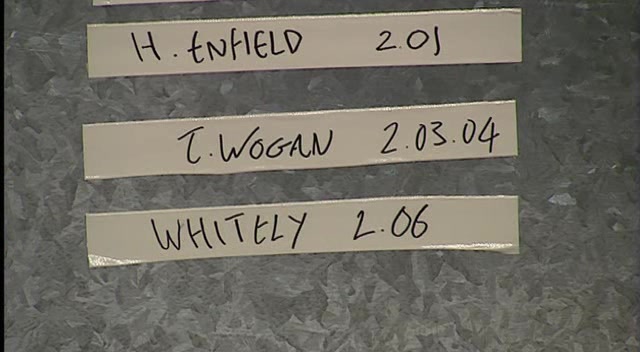 H. ENFIELD 2.01
T. WOGAN 2.03.04
WHITELY 2.06